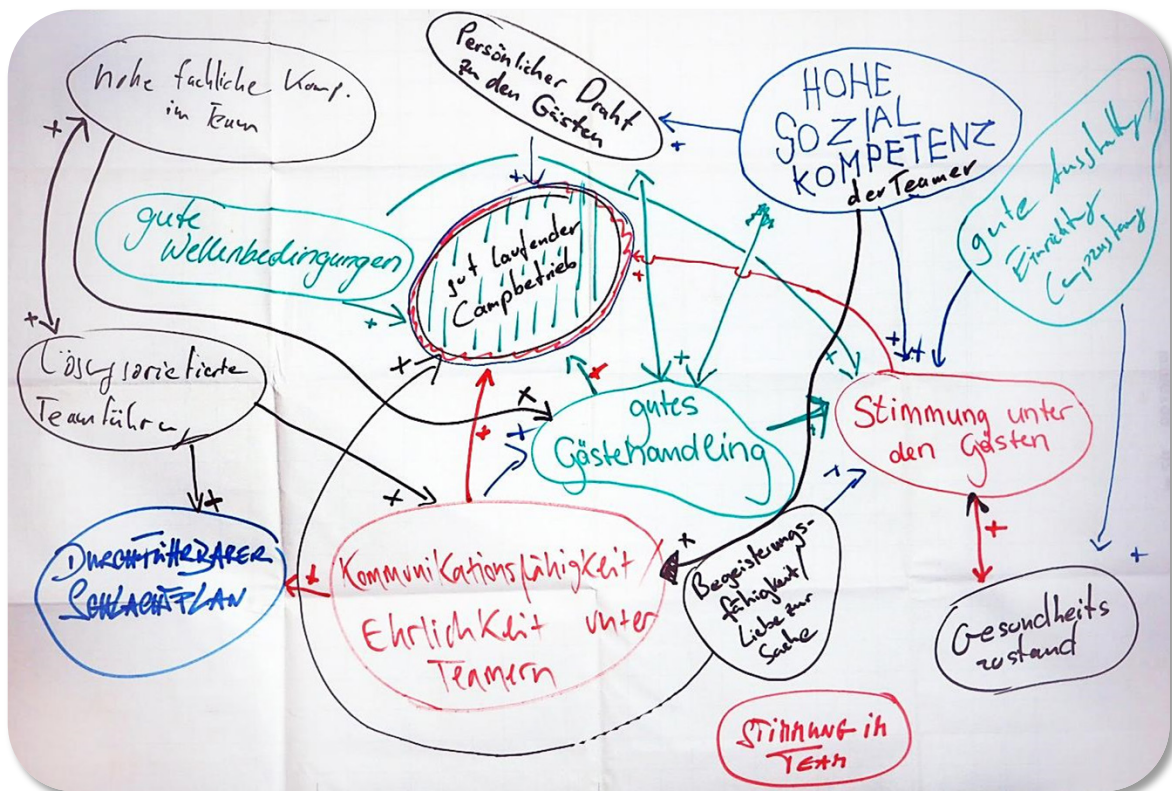 hohe fachliche Komp.
im Team
Persönlicher Draht
zu den Gästen
HOHE
SOZIAL
KOMPETENZ
der Teamer
gute
Einrichtung
Campzustand
gute
Wellenbedingungen
gut laufender
Campbetrieb
Teamführung
gutes
Gästehandling
Stimmung unter
den Gästen
DURCHFÜHRBARER
SCHLACHTPLAN
Kommunikationsfähigkeit
Ehrlichkeit unter
Teamern
Begeisterungs-
fähigkeit/
Liebe zur
Sache
Gesundheits
zustand
STIMMUNG IM
TEAM